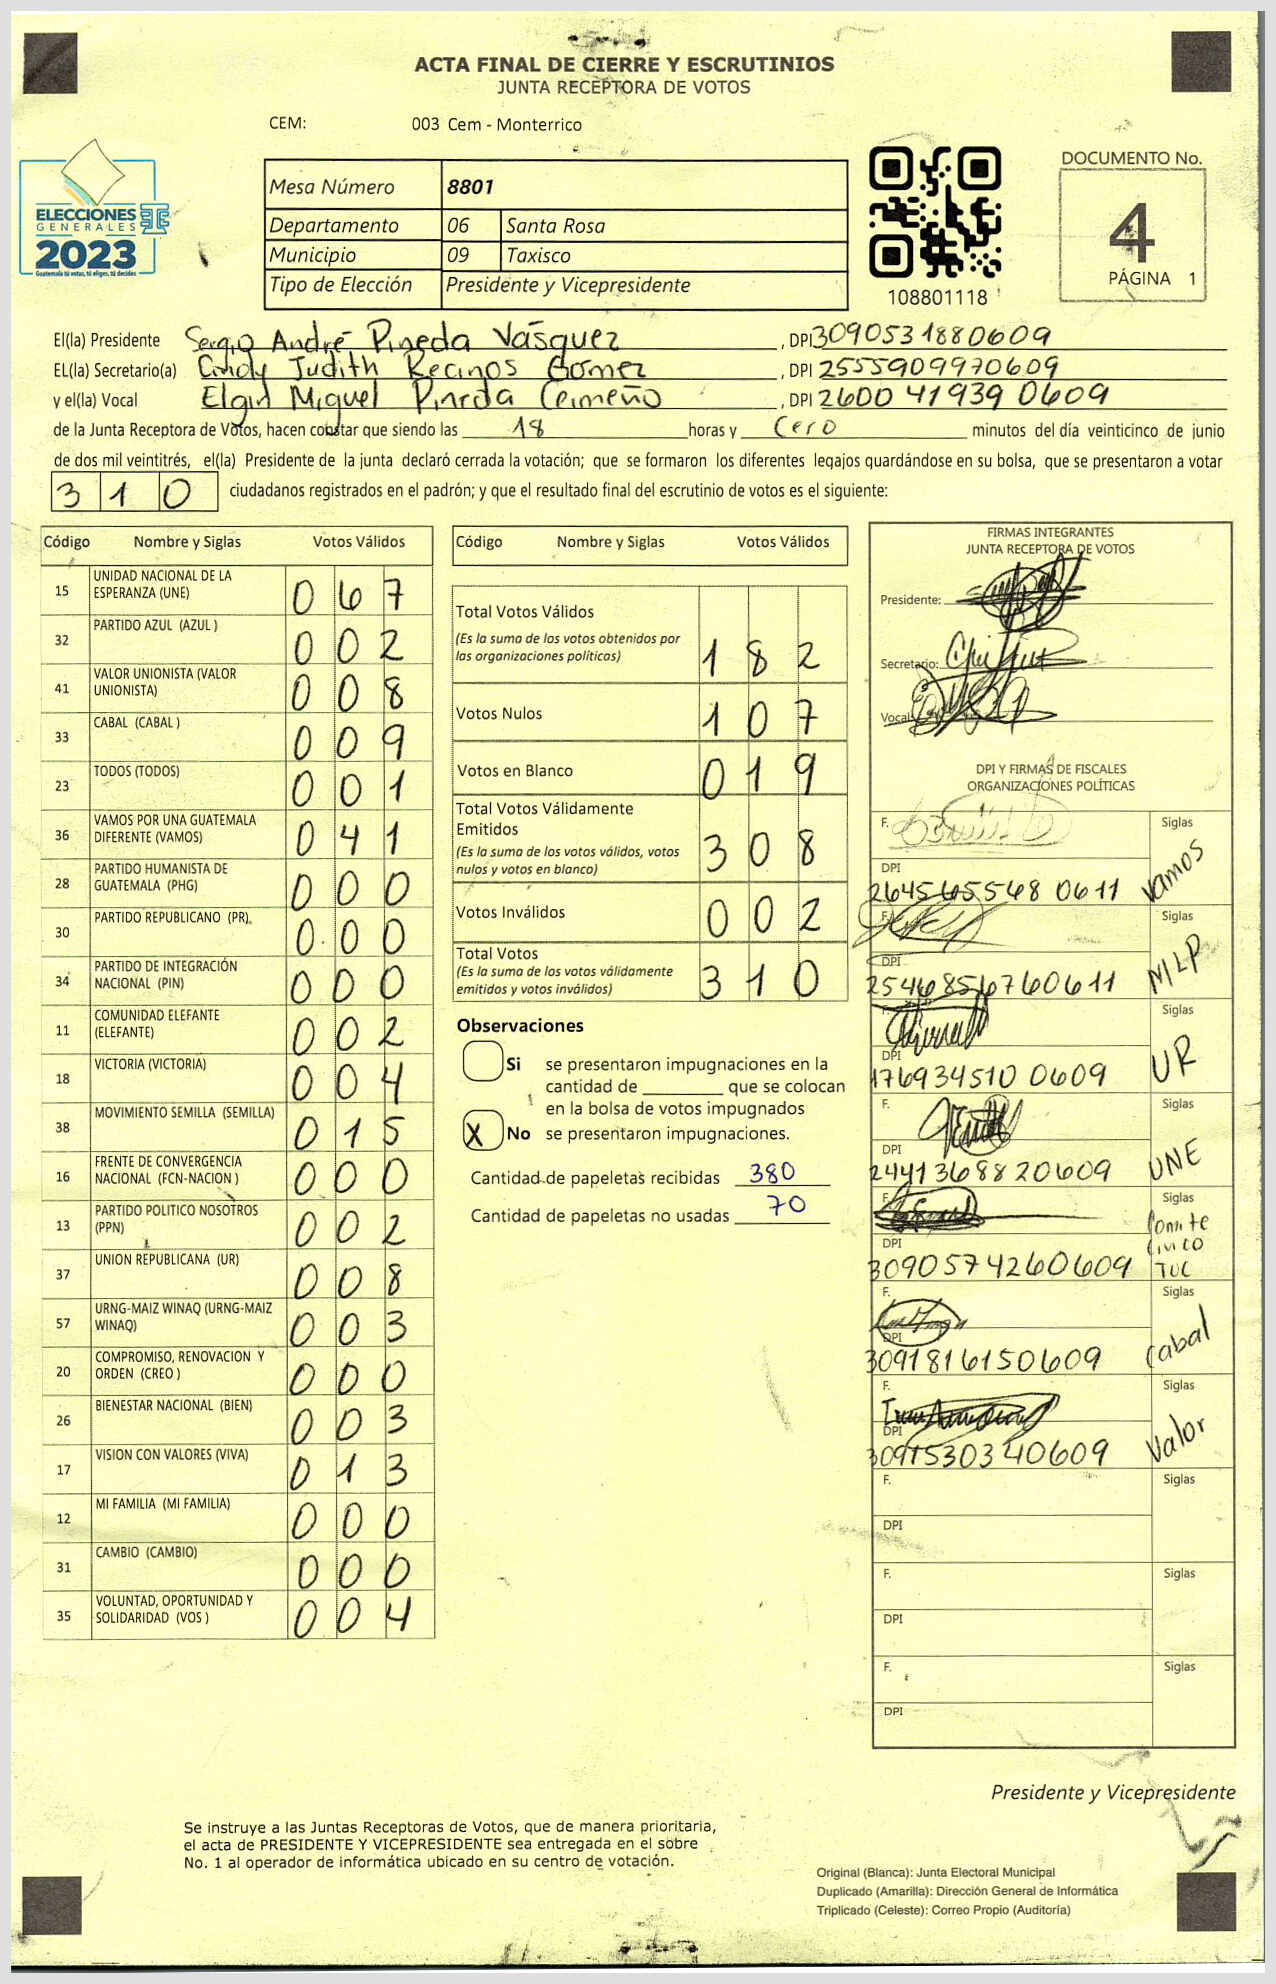 ACTA FINAL DE CIERRE Y ESCRUTINIOS
JUNTA RECEPTORA DE VOTOS
CEM: 003 Cem - Monterrico
ELECCIONES
GENERALES
2023
Guatemala tú votas, tú eliges, tú decides
Mesa Número 8801
Departamento 06 Santa Rosa
Municipio 09 Taxisco
Tipo de Elección Presidente y Vicepresidente
108801118
DOCUMENTO No.
4
PÁGINA 1
El(la) Presidente Sergio André Pineda Vásquez, DPI 3090531880609
EL(la) Secretario(a) Cindy Judith Recinos Gomez, DPI 2555909970609
y el(la) Vocal Elgin Miguel Pineda Ceimeño, DPI 2600 41939 0609
de la Junta Receptora de Votos, hacen constar que siendo las 18 horas y Cero minutos del día veinticinco de junio
de dos mil veintitrés, el(la) Presidente de la junta declaró cerrada la votación; que se formaron los diferentes legajos guardándose en su bolsa, que se presentaron a votar
310 ciudadanos registrados en el padrón; y que el resultado final del escrutinio de votos es el siguiente:
Código Nombre y Siglas Votos Válidos
15 UNIDAD NACIONAL DE LA ESPERANZA (UNE) 067
32 PARTIDO AZUL (AZUL ) 002
41 VALOR UNIONISTA (VALOR UNIONISTA) 008
33 CABAL (CABAL ) 009
23 TODOS (TODOS) 001
36 VAMOS POR UNA GUATEMALA DIFERENTE (VAMOS) 041
28 PARTIDO HUMANISTA DE GUATEMALA (PHG) 000
30 PARTIDO REPUBLICANO (PR) 000
34 PARTIDO DE INTEGRACIÓN NACIONAL (PIN) 000
11 COMUNIDAD ELEFANTE (ELEFANTE) 002
18 VICTORIA (VICTORIA) 004
38 MOVIMIENTO SEMILLA (SEMILLA) 015
16 FRENTE DE CONVERGENCIA NACIONAL (FCN-NACION ) 000
13 PARTIDO POLITICO NOSOTROS (PPN) 002
37 UNION REPUBLICANA (UR) 008
57 URNG-MAIZ WINAQ (URNG-MAIZ WINAQ) 003
20 COMPROMISO, RENOVACION Y ORDEN (CREO ) 000
26 BIENESTAR NACIONAL (BIEN) 003
17 VISION CON VALORES (VIVA) 013
12 MI FAMILIA (MI FAMILIA) 000
31 CAMBIO (CAMBIO) 000
35 VOLUNTAD, OPORTUNIDAD Y SOLIDARIDAD (VOS ) 004
Código Nombre y Siglas Votos Válidos
Total Votos Válidos 182
(Es la suma de los votos obtenidos por
las organizaciones políticas)
Votos Nulos 107
Votos en Blanco 019
Total Votos Válidamente
Emitidos 308
(Es la suma de los votos válidos, votos
nulos y votos en blanco)
Votos Inválidos 002
Total Votos 310
(Es la suma de los votos válidamente
emitidos y votos inválidos)
Observaciones
Si se presentaron impugnaciones en la
cantidad de ________ que se colocan
en la bolsa de votos impugnados
X No se presentaron impugnaciones.
Cantidad de papeletas recibidas 380
Cantidad de papeletas no usadas 70
FIRMAS INTEGRANTES
JUNTA RECEPTORA DE VOTOS
Presidente:
Secretario:
Vocal:
DPI Y FIRMAS DE FISCALES
ORGANIZACIONES POLÍTICAS
F. Siglas Vamos
DPI 264565568 0611
F. Siglas MLP
DPI 2546856760611
F. Siglas UR
DPI 176934510 0609
F. Siglas UNE
DPI 2441368820609
F. Siglas Comite Civico TUC
DPI 3090574260609
F. Siglas Cabal
DPI 3091816150609
F. Siglas Valor
DPI 3091530340609
F. Siglas
DPI
F. Siglas
DPI
F. Siglas
DPI
Presidente y Vicepresidente
Se instruye a las Juntas Receptoras de Votos, que de manera prioritaria,
el acta de PRESIDENTE Y VICEPRESIDENTE sea entregada en el sobre
No. 1 al operador de informática ubicado en su centro de votación.
Original (Blanca): Junta Electoral Municipal
Duplicado (Amarilla): Dirección General de Informática
Triplicado (Celeste): Correo Propio (Auditoría)